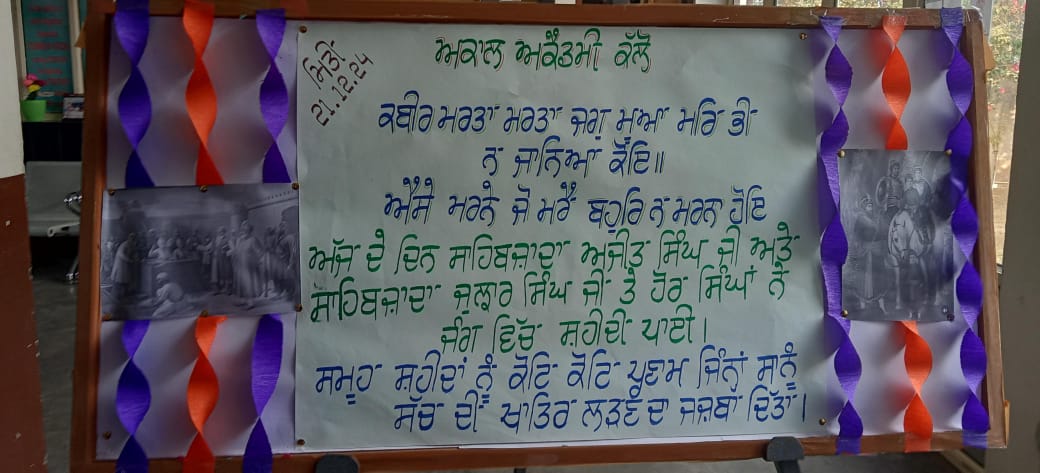 ਮਿਤੀ
21.12.24
ਅਕਾਲ ਅਕੈਡਮੀ ਕੱਲੋਂ
ਕਬੀਰ ਮਰਤਾ ਮਰਤਾ ਜਗੁ ਮੁਆ ਮਰਿ ਭੀ
ਨ ਜਾਨਿਆ ਕੋਇ॥
ਐਸੇ ਮਰਨੇ ਜੋ ਮਰੈ ਬਹੁਰਿ ਨ ਮਰਨਾ ਹੋਇ
ਅੱਜ ਦੇ ਦਿਨ ਸਾਹਿਬਜ਼ਾਦਾ ਅਜੀਤ ਸਿੰਘ ਜੀ ਅਤੇ
ਸਾਹਿਬਜ਼ਾਦਾ ਜੁਝਾਰ ਸਿੰਘ ਜੀ ਤੇ ਹੋਰ ਸਿੰਘਾਂ ਨੇ
ਜੰਗ ਵਿੱਚ ਸ਼ਹੀਦੀ ਪਾਈ।
ਸਮੂਹ ਸ਼ਹੀਦਾਂ ਨੂੰ ਕੋਟਿ ਕੋਟਿ ਪ੍ਰਣਾਮ ਜਿੰਨਾਂ ਸਾਨੂੰ
ਸੱਚ ਦੀ ਖਾਤਿਰ ਲੜਣ ਦਾ ਜਜ਼ਬਾ ਦਿੱਤਾ।